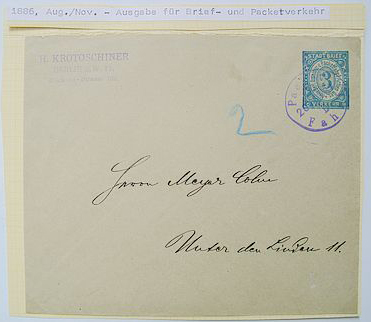 1886, Aug./Nov. - Ausgabe für Brief- und Packetverkehr
H. KROTOSCHINER
STADT BRIEF
3
VERKEHR
Pa
Fah
2
Herrn Meyer Cohn
Unter den Linden 11.